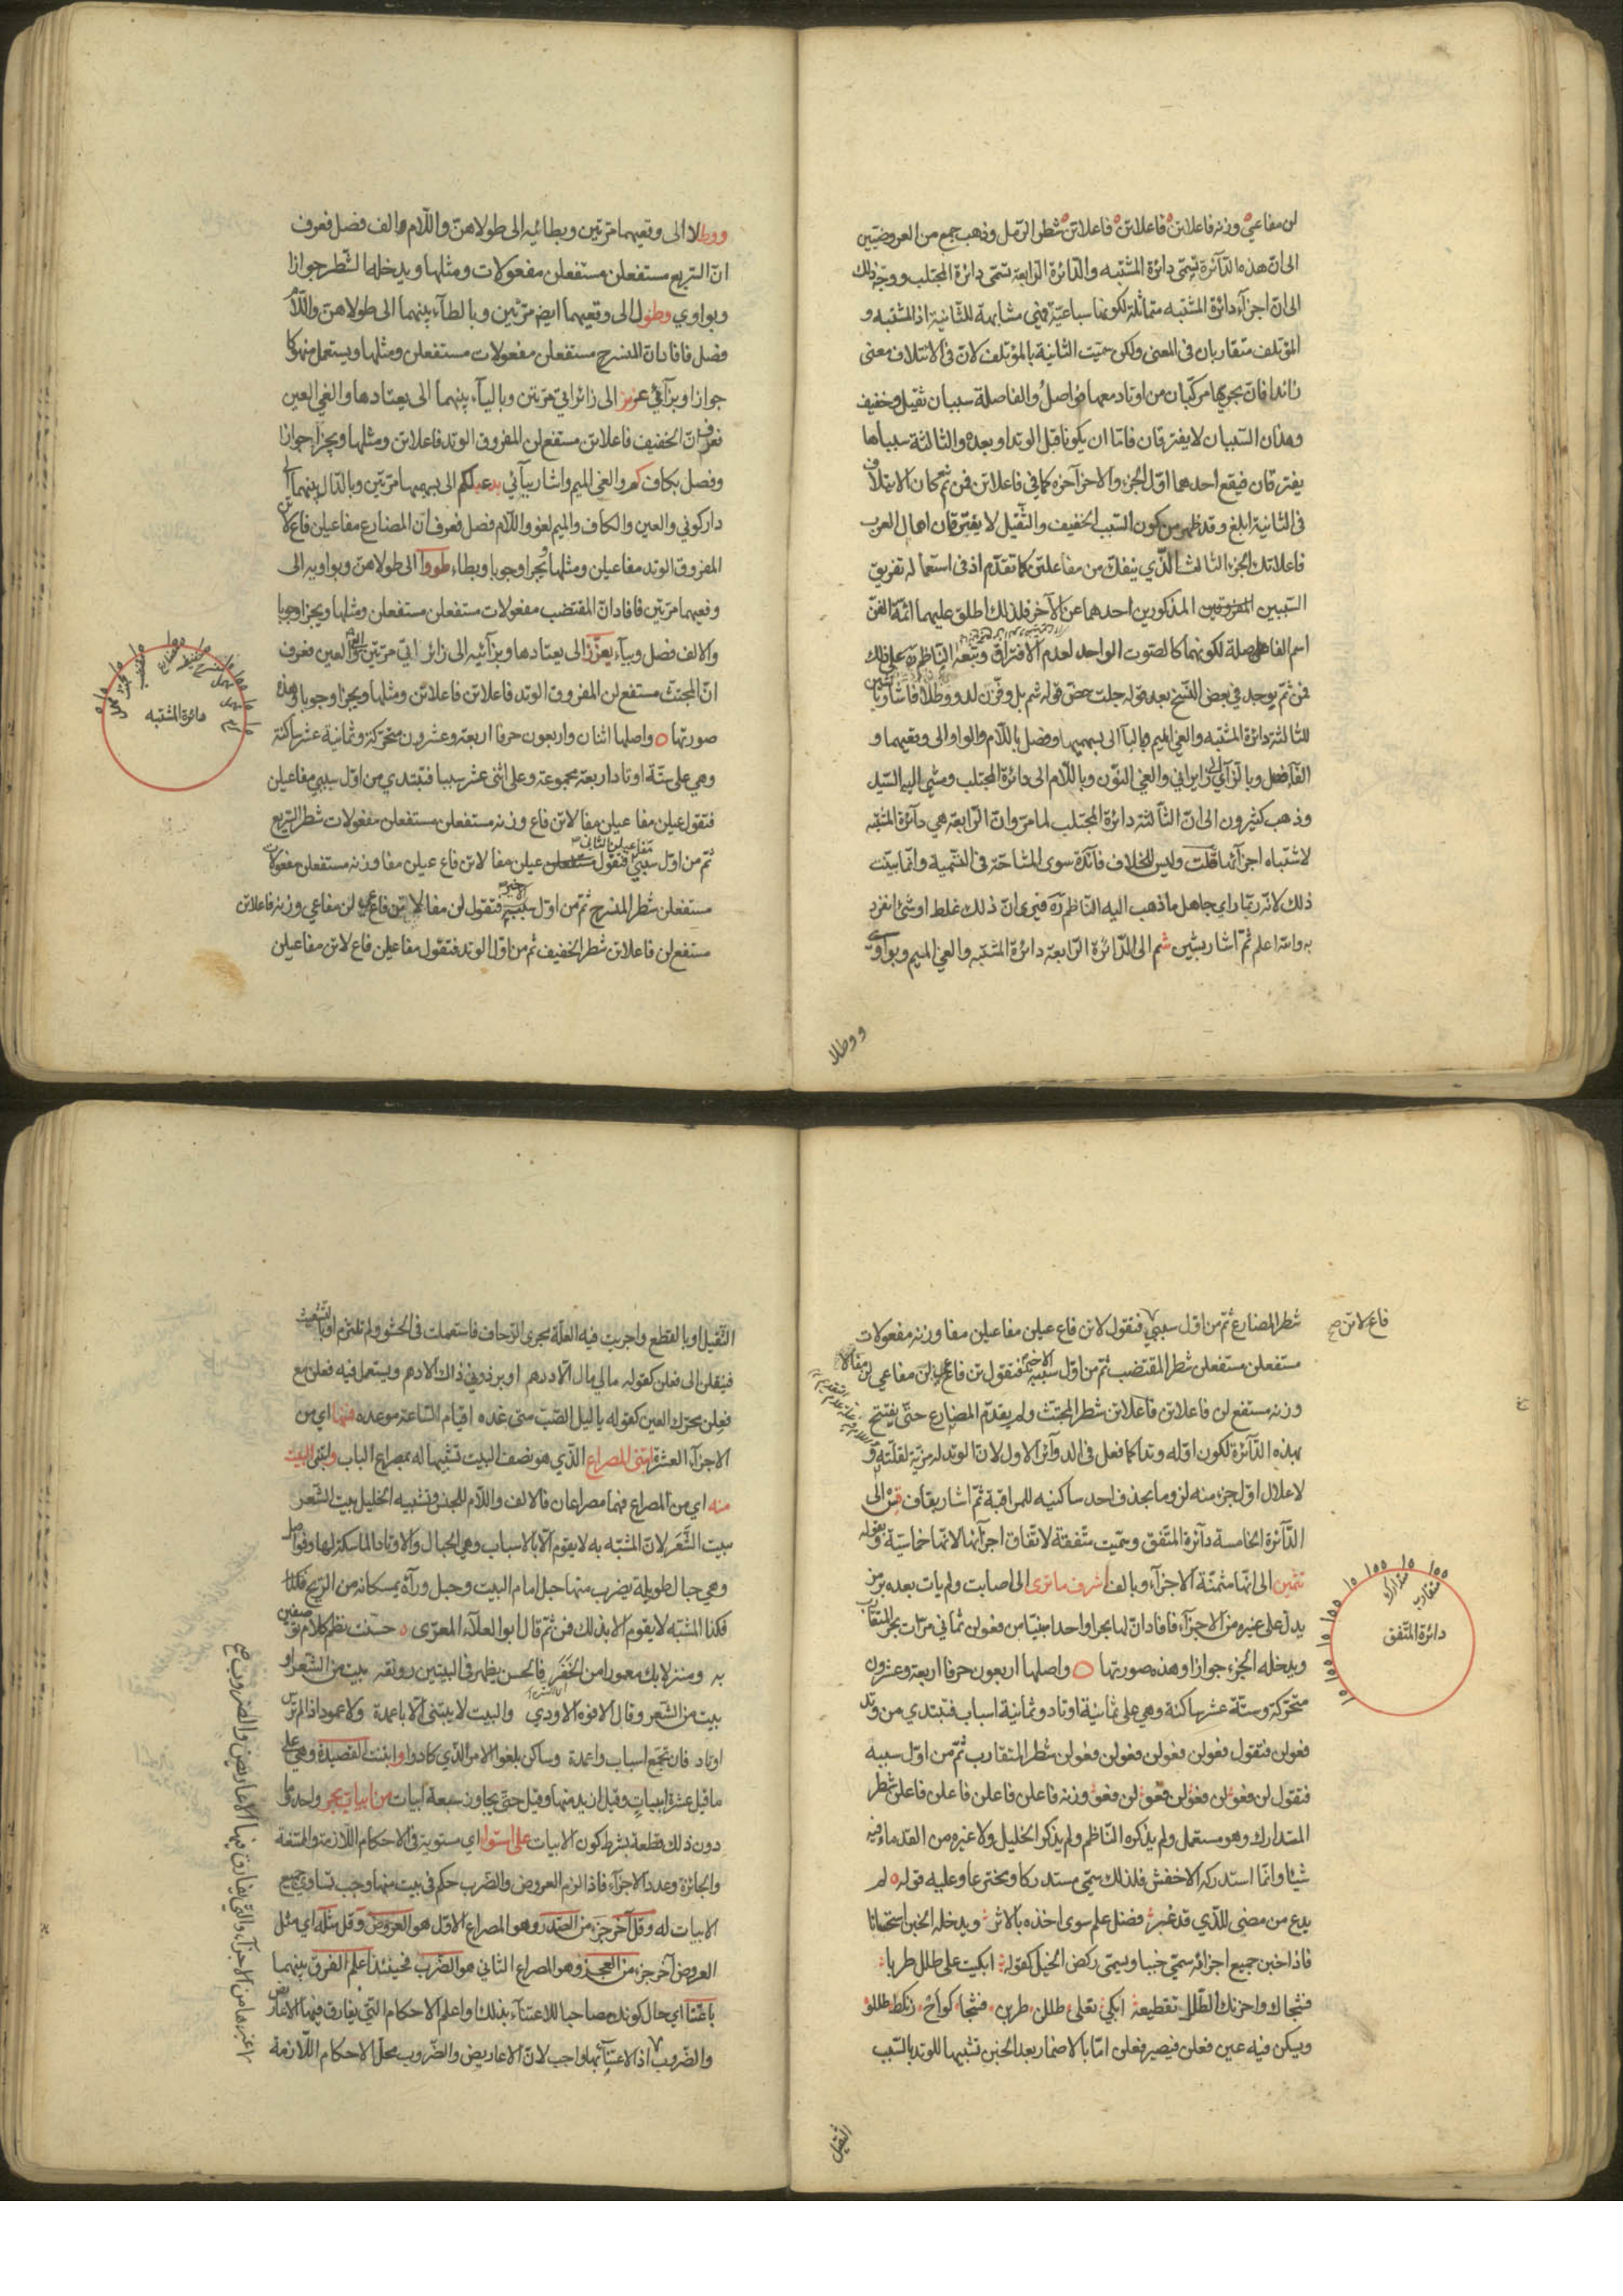 لن مفاعي وزنه فاعلاتن فاعلاتن فاعلاتن شطر الرمل وذهب جمع من العروضيين
الى ان هذه الدائرة تسمى دائرة المشتبه والدائرة الرابعة تسمى دائرة المجتلب ووجه ذلك
الى ان اجزاء دائرة المشتبه متماثلة لكونها سباعية فهي مشابهة للثانية اذ المشتبه و
المؤتلف متقاربان في المعنى ولكن سميت الثانية بالمؤتلف لان في الائتلاف معنى
زائدا فان بحريها مركبان من اوتاد معها فواصل والفاصلة سببان ثقيل وخفيف
وهذان السببان لا يفترقان فاما ان يكونا قبل الوتد او بعده والثالثة سبباها
يفترقان فيقع احدهما اول الجزء والاخر آخره كما في فاعلاتن فمن ثم كان الايتلاف
في الثانية ابلغ وقد ظهر من كون السبب الخفيف والثقيل لا يفترقان اهمال العرب
فاعلاتك الجزء الثالث الذي ينفك من مفاعلتن كما تقدم اذ في استعماله تفريق
السببين المفروقين المذكورين احدهما عن الآخر فلذلك اطلق عليهما ائمة الفن
اسم الفاصلة لكونهما كالصوت الواحد لعدم الافتراق وتبعه الناظم على ذلك
فمن ثم يوجد في بعض النسخ بعد قوله جلت حض قوله شم بل وفزن لدو وطلا فاشار
للثالثة دائرة المشتبه والغي الميم وبالبا الى بهميها وفصل باللام والواو الى وقعيهما و
الفا فصل وبالزاي الى زايراتي والغي النون وباللام الى دائرة المجتلب ومشى اليه السيد
وذهب كثيرون الى ان الثالثة دائرة المجتلب لما مر وان الرابعة هي دائرة المشتبه
لاشتباه اجزائها قلت وليس للخلاف فائدة سوى المشاحة في التسمية وانما بينت
ذلك لانه ربما راى جاهل ما ذهب اليه الناظم فيرى ان ذلك غلط او شئ انفرد
به والله اعلم ثم اشار بشين شم الى الدائرة الرابعة دائرة المشتبه والغي الميم وبواو
ووطلا
ووطلا الى وقعيهما مرتين وبطائيه الى طولاهن واللام والف فصل فعرف
ان السريع مستفعلن مستفعلن مفعولات ومثلها ويدخلها الشطر جوازا
وبواوي وطول الى وقعيهما ايض مرتين وبالطاء بينهما الى طولاهن واللام
فصل فافاد ان المنسرح مستفعلن مفعولات مستفعلن ومثلها ويستعمل منهوكا
جوازا وبزائي عزيز الى زائراتي مرتين وبالياء بينهما الى يعتادها والغي العين
فعرف ان الخفيف فاعلاتن مستفع لن المفروق الوتد فاعلاتن ومثلها ويجزا جوازا
وفصل بكاف كم والغي الميم واشار ببائي بدعبلكم الى بهميهما مرتين وبالدال بينهما الى
داركوني والعين والكاف والميم لغو واللام فصل فعرف ان المضارع مفاعيلن فاع لاتن
المفروق الوتد مفاعيلن ومثلها ويجزا وجوبا وبطاء طووا الى طولاهن وبواويه الى
وقعيهما مرتين فافاد ان المقتضب مفعولات مستفعلن مستفعلن ومثلها ويجزا وجوبا
والالف فصل وبياء يعزز الى يعتادها وبزائيه الى زائراتي مرتين والغي العين فعرف
ان المجتث مستفع لن المفروق الوتد فاعلاتن فاعلاتن ومثلها ويجزا وجوبا وهذه
صورتها ه واصلها اثنان واربعون حرفا اربعة وعشرون متحركة وثمانية عشر ساكنة
وهي على ستة اوتاد اربعة مجموعة وعلى اثنى عشر سببا فتبتدي من اول سببي مفاعيلن
فتقول عيلن مفا عيلن مفا لاتن فاع وزنه مستفعلن مستفعلن مفعولات شطر السريع
مفاعيلن الثاني
ثم من اول سببي فتقول عيلن مفا لاتن فاع عيلن مفا وزنه مستفعلن مفعولات
مستفعلن شطر المنسرح ثم من اول سببيه الاخير فتقول لن مفا لاتن فاع عيلن مفاعي وزنه فاعلاتن
مستفع لن فاعلاتن شطر الخفيف ثم من اول الوتد فتقول مفاعيلن فاع لاتن مفاعيلن
دائرة المشتبه
فاع لاتن صح
شطر المضارع ثم من اول سببي فتقول لاتن فاع عيلن مفاعيلن مفا وزنه مفعولات
مستفعلن مستفعلن شطر المقتضب ثم من اول سببيه الاخير فتقول تن فاع عيلن مفاعي لن مفالا
وزنه مستفع لن فاعلاتن فاعلاتن شطر المجتث ولم يقدم المضارع حتى يفتتح
بهذه الدائرة لكون اوله وتدا كما فعل في الدوائر الاول لان الوتد له مزية لقلته و
لاعلال اول جزء منه لزوما بحذف احد ساكنيه للمراقبة ثم اشار بقاف قس الى
الدائرة الخامسة دائرة المتفق وسميت متفقة لاتفاق اجزائها لانها خماسية وبقوله
تثمين الى انها مثمنة الاجزاء وبالف اشرف ما ترى الى اصابت ولم يات بعده برمز
يدل على غيره من الاجزاء فافاد ان لها بحرا واحدا مبنيا من فعولن ثماني مرات بحر المتقارب
ويدخله الجزء جوازا وهذه صورتها ه واصلها اربعون حرفا اربعة وعشرون
متحركة وستة عشر ساكنة وهي على ثمانية اوتاد وثمانية اسباب فتبتدي من وتد
فعولن فتقول فعولن فعولن فعولن فعولن شطر المتقارب ثم من اول سببه
فتقول لن فعو لن فعو لن فعو لن فعو وزنه فاعلن فاعلن فاعلن فاعلن شطر
المتدارك وهو مستعمل ولم يذكره الناظم ولم يذكر الخليل ولا غيره من القدماء فيه
شيئا وانما استدركه الاخفش فلذلك سمى مستدركا ومخترعا وعليه قوله ه لم
يدع من مضى للذي قد غبر فضل علم سوى اخذه بالاثر ويدخله الخبن استحسانا
فاذا خبن جميع اجزائه سمي خببا ويسمى ركض الخيل كقوله ابكيت على طلل طربا
فشجاك واحزنك الطلل تقطيعه ابكي تعلى طللن طربن فشجا كواح زنكط طللو
ويسكن فيه عين فعلن فيصير فعلن اما بالاضمار بعد الخبن تشبيها للوتد بالسبب
دائرة المتفق
متقارب
متدارك
الثقيل
الثقيل او بالقطع واجريت فيه العلة مجرى الزحاف فاستعملت في الحشو ولم تلتزم او بالتشعيث
فينقلن الى فعلن كقوله مالي مال الا درهم او برذوني ذاك الادهم ويستعمل فيه فعلن مع
فعلن بحرك العين كقوله يا ليل الصب متى غده اقيام الساعة موعده فمنها اي من
الاجزاء العشرة ابتنى المصراع الذي هو نصف البيت تشبيها له بمصراع الباب وابتنى البيت
منه اي من المصراع فهما مصراعان فالالف واللام للجنس وتشبيه الخليل بيت الشعر
ببيت الشعر لان المشبه به لا يقوم الا بالاسباب وهي الحبال والاوتاد الماسكة لها وفواصل
وهي حبال طويلة يضرب منها حبل امام البيت وحبل وراءه يمسكانه من الريح فكذا
فكذا المشبه لا يقوم الا بذلك فمن ثم قال ابو العلاء المعرى ه حسنت نظم كلام توصفين
به ومنزلا بك معمورا من الخفر فالحسن يظهر في البيتين رونقه بيت من الشعر او
بيت من الشعر وقال الافوه الاودي والبيت لا يبتنى الا باعمدة ولا عمود اذا لم ترس
اوتاد فان تجمع اسباب واعمدة وساكن بلغوا الامر الذي كادوا وابتنت القصيدة وهي على
ما قيل عشرة ابيات وقيل ازيد منها وقيل حتى يجاوز سبعة ابيات من ابيات بحر واحد وما
دون ذلك قطعة بشرط كون الابيات على استوا اي مستوية في الاحكام اللازمة والممتنعة
والجائزة وعدد الاجزاء فاذا لزم العروض والضرب حكم في بيت منها وجب تساوي جميع
الابيات له وقل آخر جزء من الصدر وهو المصراع الاول هو العروض وقل مثله اي مثل
العروض آخر جزء من العجز وهو المصراع الثاني هو الضرب فحينئذ اعلم الفرق بينهما
باعتنا اي حال كونك مصاحبا للاعتناء بذلك واعلم الاحكام التي يفارق فيها الاعاريض
والضروب اذ الاعتناء بها واجب لان الاعاريض والضروب محل الاحكام اللازمة
غيرها من الاجزاء والتي يفارق فيها الاعاريض والضروب صح